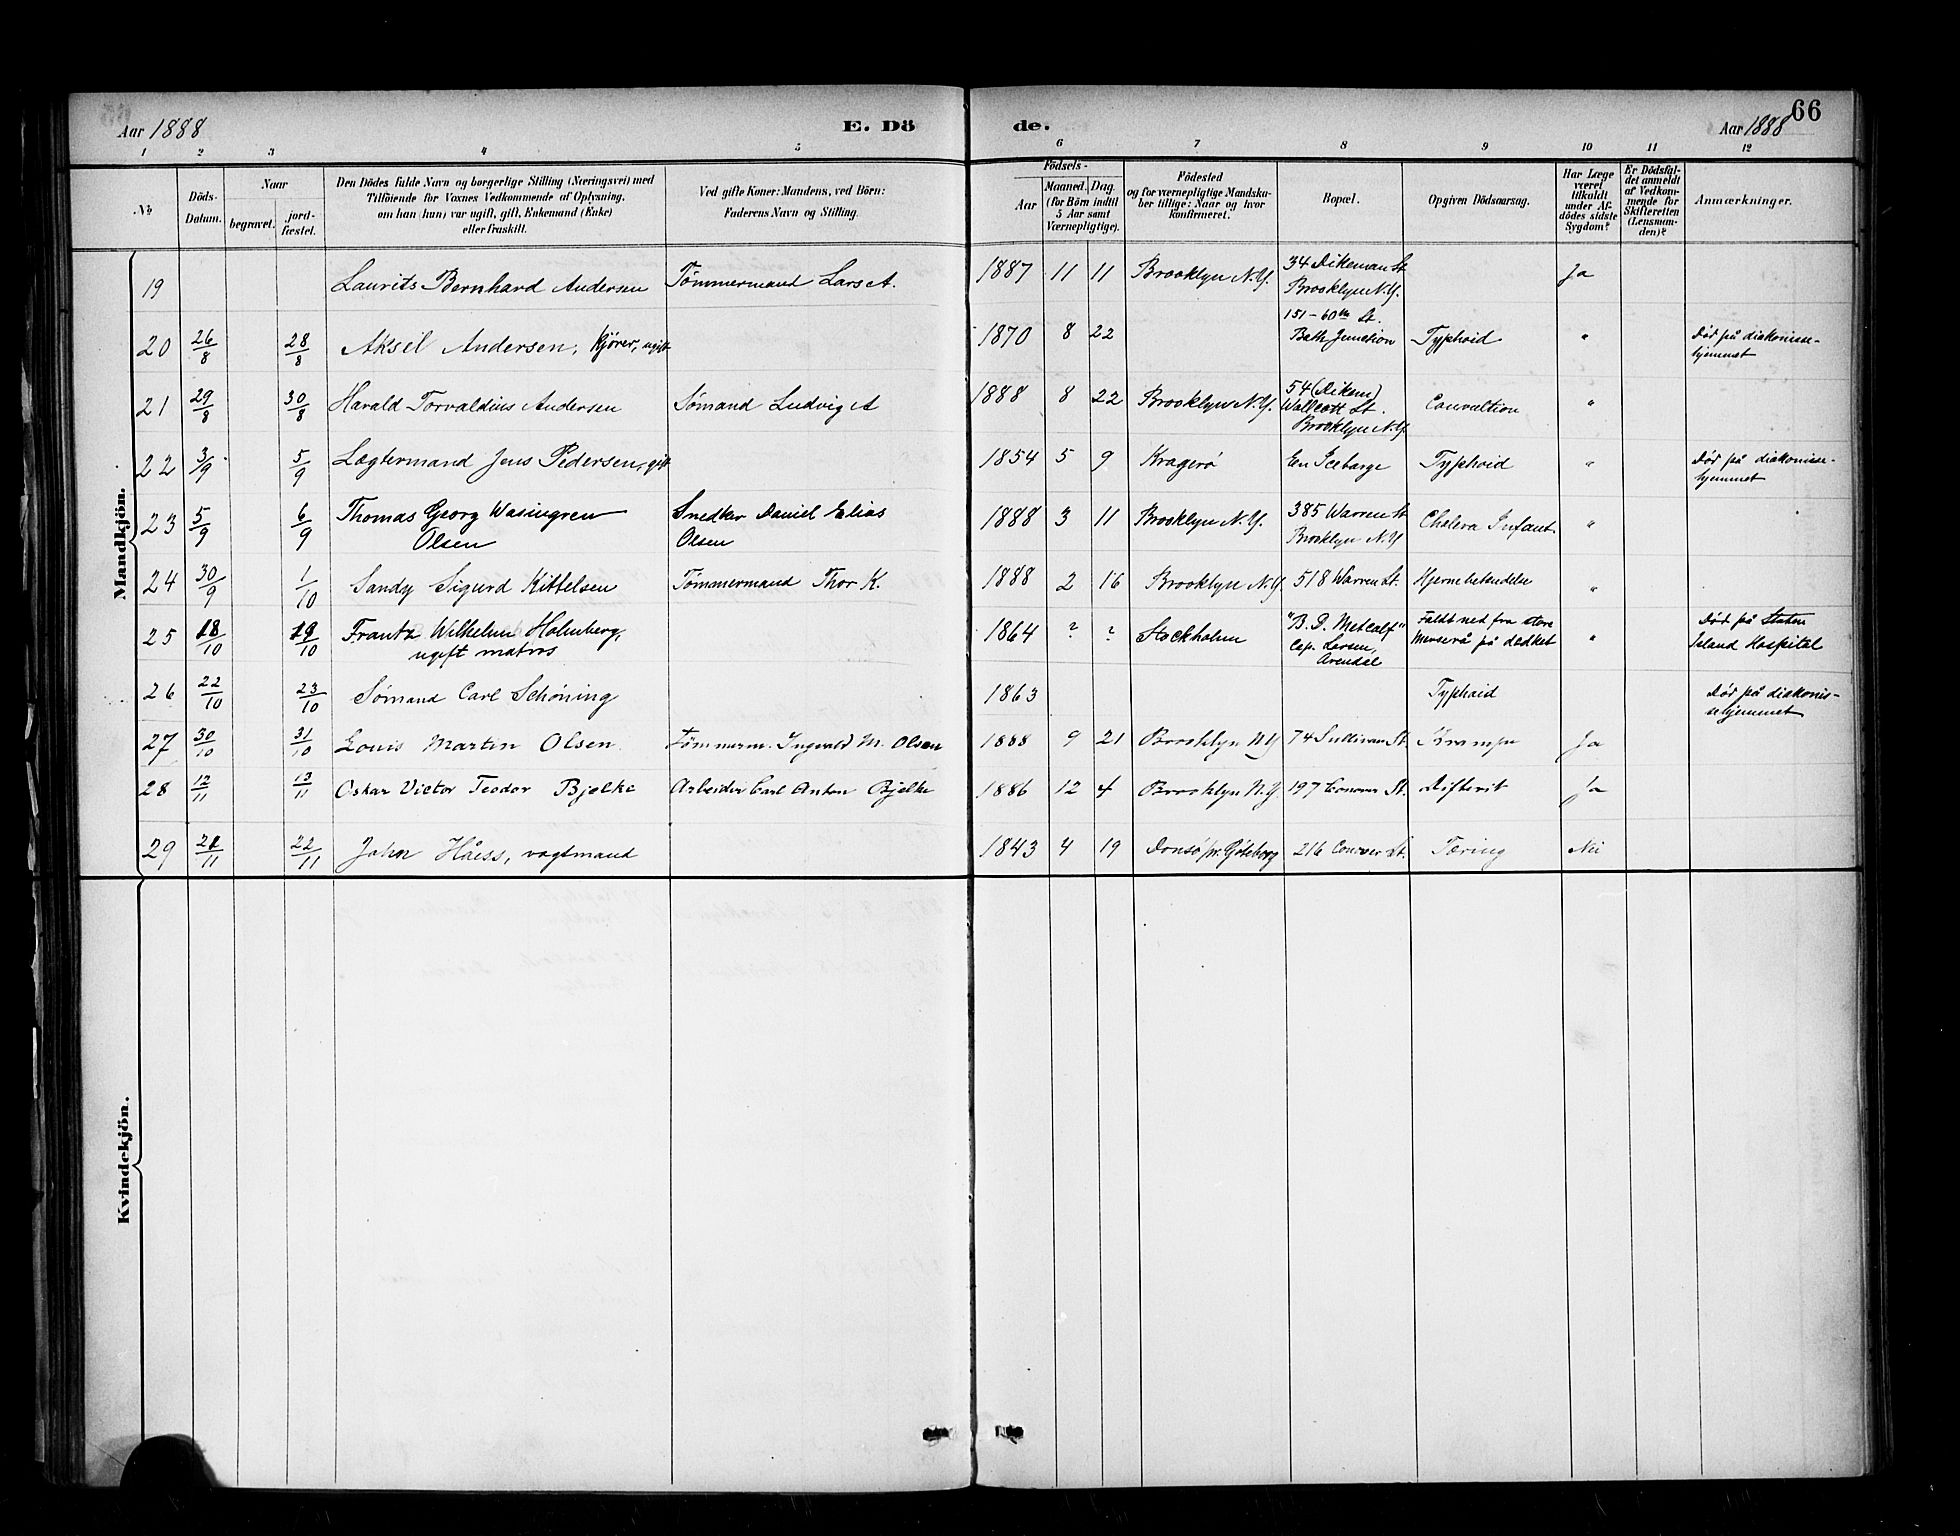 66
Aar 1888 E. Dö de. Aar 1888
1 2 3 4 5 6 7 8 9 10 11 12
No
Döds-
Datum.
Naar
begravet.
jord-
fæstet.
Den Dödes fulde Navn og borgerlige Stilling (Næringsvei) med
Tilföiende for Voxnes Vedkommende af Oplysning,
om han (hun) var ugift, gift, Enkemand (Enke)
eller fraskilt.
Ved gifte Koner: Mandens, ved Börn:
Faderens Navn og Stilling.
Födsels-
Aar
Maaned. Dag.
(for Börn indtil
5 Aar samt
Værnepligtige).
Födested
og for værnepligtige Mandska-
ber tillige: Naar og hvor
konfirmeret.
Bopæl.
Opgiven Dödsaarsag.
Har Læge
været
tilkaldt
under Af-
dödes sidste
Sygdom?
Er Dödsfal-
det anmeldt
af Vedkom-
mende for
Skifteretten
(Lensman-
den)?
Anmærkninger.
Mandkjön.
19 Laurits Bernhard Andersen Tømmermand Lars A. 1887 11 11 Brooklyn N.Y. 34 Dikeman St Ja
Brooklyn N.Y.
151 – 60th St.
20 26/8 28/8 Aksel Andersen, Kjører, ugift 1870 8 22 Bath Junction Typhoid " Død på diakonisse-
hjemmet
21 29/8 30/8 Harald Torvaldius Andersen Sømand Ludvig A 1888 8 22 Brooklyn N.Y. 54 (Dikem)
Wallcott St. Convultion "
Brooklyn N.Y.
22 3/9 5/9 Lægtermand Jens Pedersen, gift 1854 5 9 Kragerø Een Icebarge Typhoid " Død på diakonisse-
hjemmet
23 5/9 6/9 Thomas Georg Wasingren Snedker Daniel Elias 1888 3 11 Brooklyn N.Y. 385 Warren St Cholera Infant. "
Olsen Olsen Brooklyn N.Y
24 30/9 1/10 Sandy Sigurd Kittelsen Tømmermand Thor K. 1888 2 16 Brooklyn N.Y. 518 Warren St. Hjernebetendelse "
25 18/10 19/10 Frantz Wilhelm Holmberg, 1864 ? ? Stockholm "B. D. Metcalf" Faldt ned fra store " Død på Staten
ugift matros Cap. Larsen, Merserå på dækket Island Hospital
Arendal
26 22/10 23/10 Sømand Carl Schöning 1863 Typhoid Død på diakonis-
sehjemmet
27 30/10 31/10 Louis Martin Olsen Tømmerm. Ingvald M. Olsen 1888 9 21 Brooklyn NY 74 Sullivan St. Krampe Ja
28 12/11 13/11 Oskar Victor Teodor Bjelke Arbeider Carl Anton Bjelke 1886 12 4 Brooklyn N.Y. 197 Conover St. Difterit Ja
29 21/11 22/11 John Håess, vagtmand 1843 4 19 Donsö pr. Göteborg 216 Conover St. Tæring Nei
Kvindekjön.